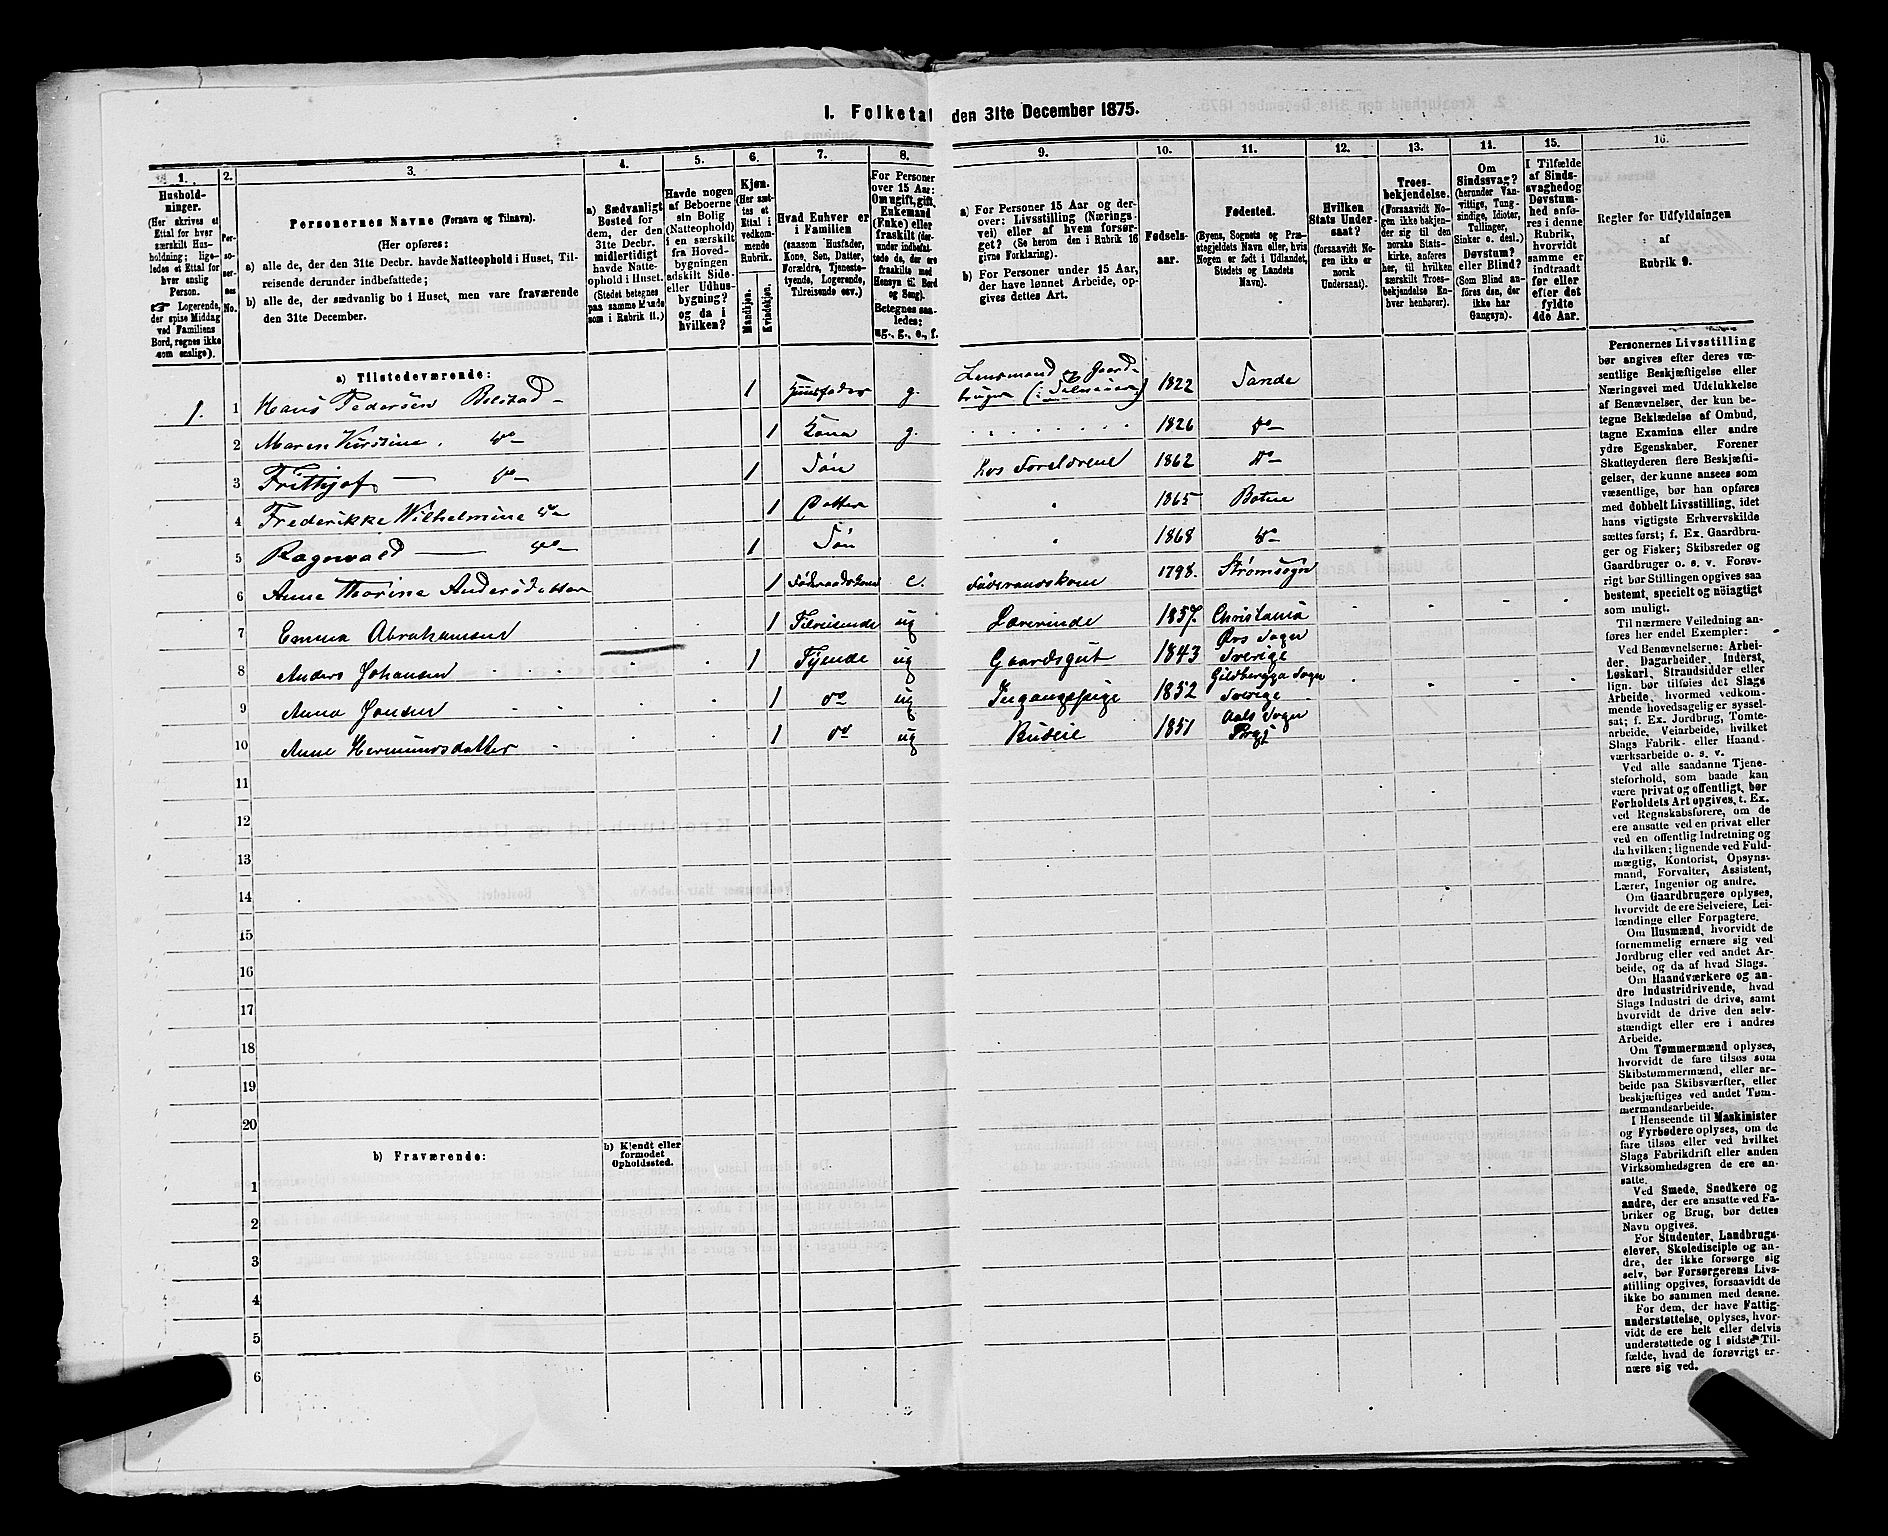 1. Folketal den 31te December 1875.
1.
Hushold-
ninger.
(Her skrives et
Ettal for hver
særskilt Hus-
holdning; lige-
ledes et Ettal for
enslig
Person.
☞ Logerende,
der spise Middag
ved Familiens
Bord, regnes ikke
som enslige).
2.
Per-
so-
ner-
nes
No.
3.
Personernes Navne (Fornavn og Tilnavn).
(Her opføres:
a) alle de, der den 31te Decbr. havde Natteophold i Huset, Til-
reisende derunder indbefattede;
b) alle de, der sædvanlig bo i Huset, men vare fraværende
den 31te December.
4.
a) Sædvanligt
Bosted for
dem, der den
31te Decbr.
midlertidigt
havde Natte-
ophold i Huset.
(Stedet betegnes
paa samme Maade
som i Rubrik 11.)
5.
Havde nogen
af Beboerne
sin Bolig
(Natteophold)
i en særskilt
fra Hoved-
bygningen
adskilt Side-
eller Udhus-
bygning?
og da i
hvilken?
6.
Kjøn.
(Her sæt-
tes et
Ettal i
vedkom-
mende
Rubrik.)
Mandkjøn.
Kvindekjøn.
7.
Hvad Enhver er
i Familien
(saasom Husfader,
Kone, Søn, Datter,
Forældre, Tjeneste-
tyende, Logerende,
Tilreisende osv.)
8.
For Personer
over 15 Aar:
Om ugift, gift,
Enkemand
(Enke) eller
fraskilt (der-
under indbefat-
tede de, der ere
fraskilte med
Hensyn til Bord
og Seng).
Betegnes saa-
ledes:
ug., g., e., f.
9.
a) For Personer 15 Aar og der-
over: Livsstilling (Nærings-
vei) eller af hvem forsør-
get? (Se herom den i Rubrik 16
givne Forklaring).
b) For Personer under 15 Aar,
der have lønnet Arbeide, op-
gives dettes Art.
10.
Fødsels-
aar.
11.
Fødested.
(Byens, Sognets og Præ-
stegjeldets Navn eller, hvis
Nogen er født i Udlandet,
Stedets og Landets
Navn).
12.
Hvilken
Stats Under-
saat?
(forsaavidt No-
gen ikke er
norsk
Undersaat).
13.
Troes-
bekjendelse.
(Forsaavidt No-
gen ikke bekjen-
der sig til den
norske Stats-
kirke, anføres
her, til hvilken
særskilt Troes-
bekjendelse En-
hver henhører).
14.
Om
Sindssvag?
(herunder Van-
vittige, Tung-
sindige, Idioter,
Tullinger,
Sinker o. desl.)
Døvstum?
eller Blind?
(Som Blind an-
føres den, der
ikke har
Gangsyn).
15.
I Tilfælde
af Sinds-
svaghed og
Døvstum-
hed anfø-
res i denne
Rubrik,
hvorvidt
samme er
indtraadt
før eller
efter det
fyldte
4de Aar.
16.
Regler for Udfyldningen
af
Rubrik 9.
a) Tilstedeværende:
1. 1 Hans Pedersen Bolstad 1 Huusfader g. Lensmand og Gaard-
bruger (Selveier) 1822 Sande
2 Maren Kirstine do 1 Kone g. 1826 do
3 Frithjof do 1 Søn Hos Forældrene 1862 do
4 Frederikke Wilhelmine do 1 Datter 1865 Botne
5 Ragnvald do 1 Søn 1868 do
6 Anne Thorine Andersdatter 1 Føderaadskone e. Føderaadskone 1798. Strømsogn
7 Emma Abrahamsen 1 Tilreisende ug Lærerinde 1857. Christiania
8 Anders Johansen 1 Tjende ug Gaardsgut 1843 Ørs Sogn
Sverige
9 Anna Jonsen 1 do ug Ingangspige 1852 Gildbergga Sogn
Sverige
10 Anne Hermundsdatter 1 do ug Budeie 1851 Aals Sogn
11
12
13
14
15
16
17
18
19
20
b) Fraværende:
b) Kjendt eller
formodet
Opholdssted.
1
2
3
4
5
6
Personernes Livsstilling
bør angives efter deres væ-
sentlige Beskjæftigelse eller
Næringsvei med Udelukkelse
af Benævnelser, der kun be-
tegne Beklædelse af Ombud,
tagne Examina eller andre
ydre Egenskaber. Forener
Skatteyderen flere Beskjæfti-
gelser, der kunne ansees som
væsentlige, bør han opføres
med dobbelt Livsstilling, idet
hans vigtigste Erhvervskilde
sættes først; f. Ex. Gaardbru-
ger og Fisker; Skibsreder og
Gaardbruger o. s. v. Forøv-
rigt bør Stillingen opgives saa
bestemt, specielt og nøiagtigt
som muligt.
Til nærmere Veiledning an-
føres her endel Exempler:
Ved Benævnelserne: Arbei-
der, Dagarbeider, Inderst,
Løskarl, Strandsidder eller
lign. bør tilføies det Slags
Arbeide, hvormed vedkom-
mende hovedsagelig er syssel-
sat; f. Ex. Jordbrug, Tomte-
arbeide, Veiarbeide, hvilket
Slags Fabrik- eller Haand-
værksarbeide o. s. v.
Ved alle saadanne Tjene-
steforhold, som baade kan
være privat og offentligt, bør
Forholdets Art opgives, t. Ex.
ved Regnskabsførere, om de
ere ansatte ved en privat eller
ved en offentlig Indretning og
da hvilken; lignende ved Fuld-
mægtig, Kontorist, Opsyns-
mand, Forvalter, Assistent,
Lærer, Ingeniør og andre.
Om Gaardbrugere oplyses,
hvorvidt de ere Selveiere, Lei-
lændinge eller Forpagtere.
Om Husmænd, hvorvidt de
fornemmelig ernære sig ved
Jordbrug eller ved andet Ar-
beide, og da af hvad Slags.
Om Haandværkere og an-
dre Industridrivende, hvad
Slags Industri de drive, samt
hvorvidt de drive den selv-
stændigt eller ere i andres
Arbeide.
Om Tømmermænd oplyses,
hvorvidt de fare tilsøs som
Skibstømmermænd, eller ar-
beide paa Skibsværfter, eller
beskjæftiges ved andet Tøm-
mermandsarbeide.
I Henseende til Maskinister
og Fyrbødere oplyses, om de
fare tilsøs eller ved hvilket
Slags Fabrikdrift eller anden
Virksomhedsgren de ere an-
satte.
Ved Smede, Snedkere og
andre, der ere ansatte ved Fa-
briker og Brug, bør dettes
Navn opgives.
For Studenter, Landbrugs-
elever, Skoledisciple og an-
dre, der ikke forsørge sig
selv, bør Forsørgerens Livs-
stilling opgives, forsaavidt de
ikke bo sammen med denne.
For dem, der have Fattig-
understøttelse, oplyses, hvor-
vidt de ere helt eller delvis
understøttede og i sidste Til-
fælde, hvad de forøvrigt er-
nære sig ved.